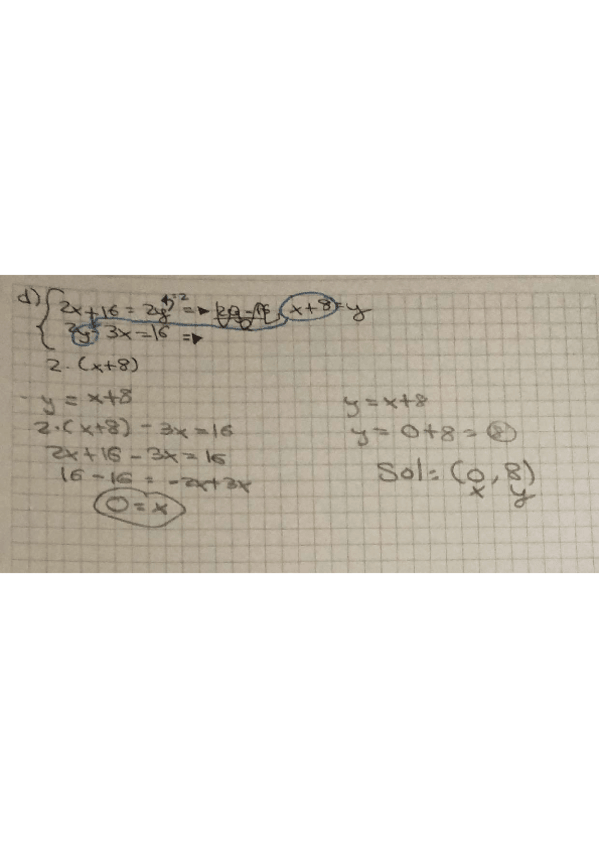 d) { 2x+16 = 2y ⇒ x+8 = y
2y - 3x = 16 ⇒
2·(x+8)
y = x+8
2·(x+8) - 3x = 16
2x+16 - 3x = 16
16 - 16 = -2x+3x
0 = x
y = x+8
y = 0+8 = 8
Sol = (0, 8)
x y